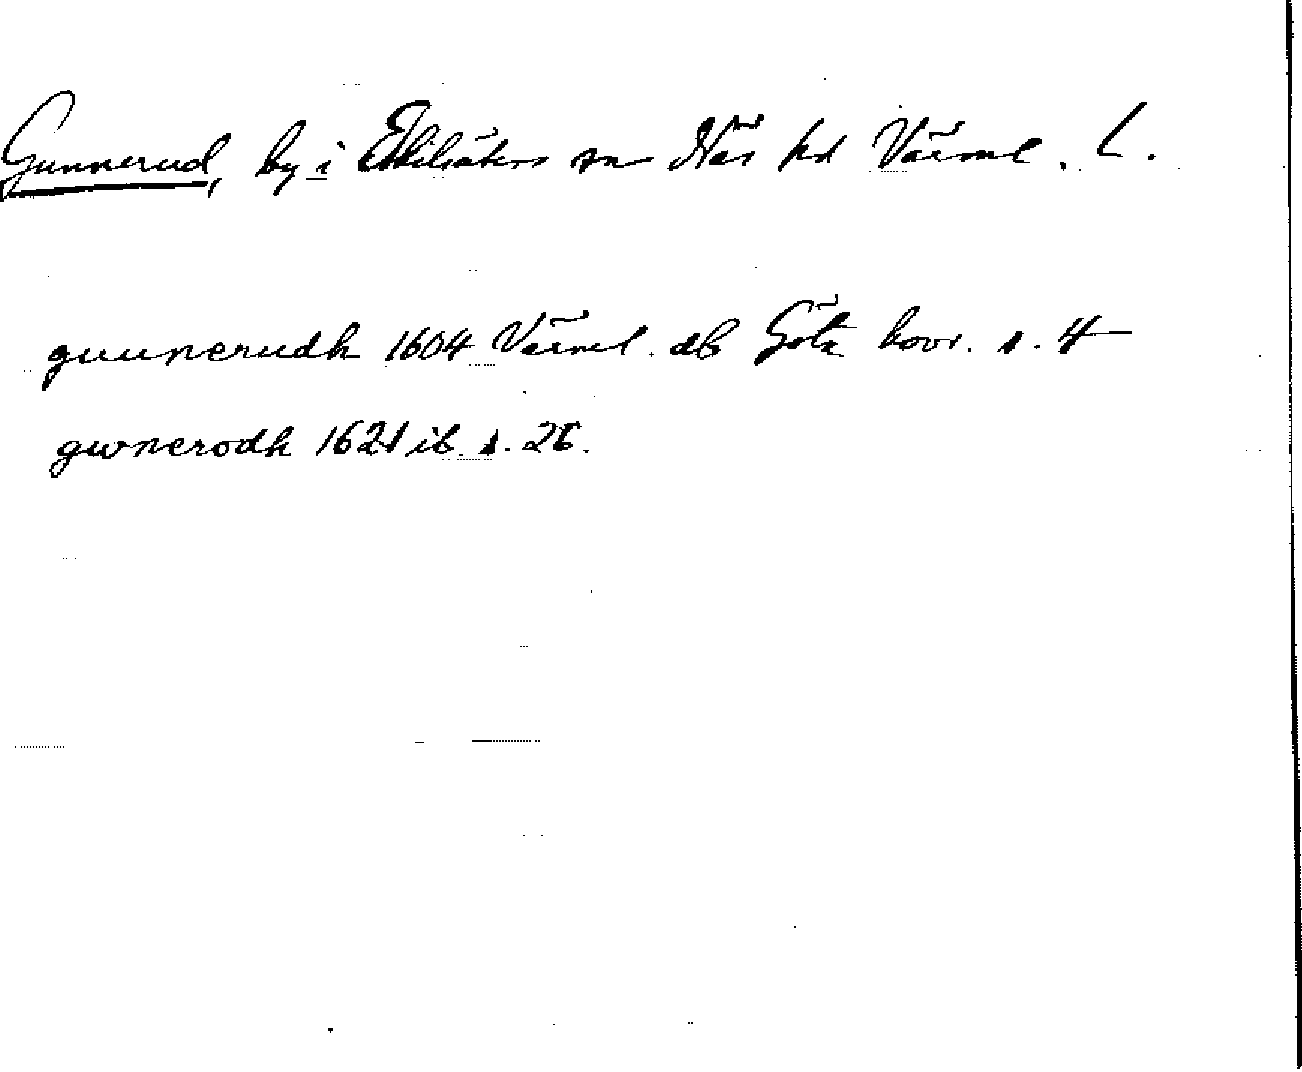 Gunnerud, by i Eskilsäters sn Näs hd Värml. l.
guunerudh 1604 Värml. db Göta hovr. s. 4
gwnerodh 1621 ib. s. 26.